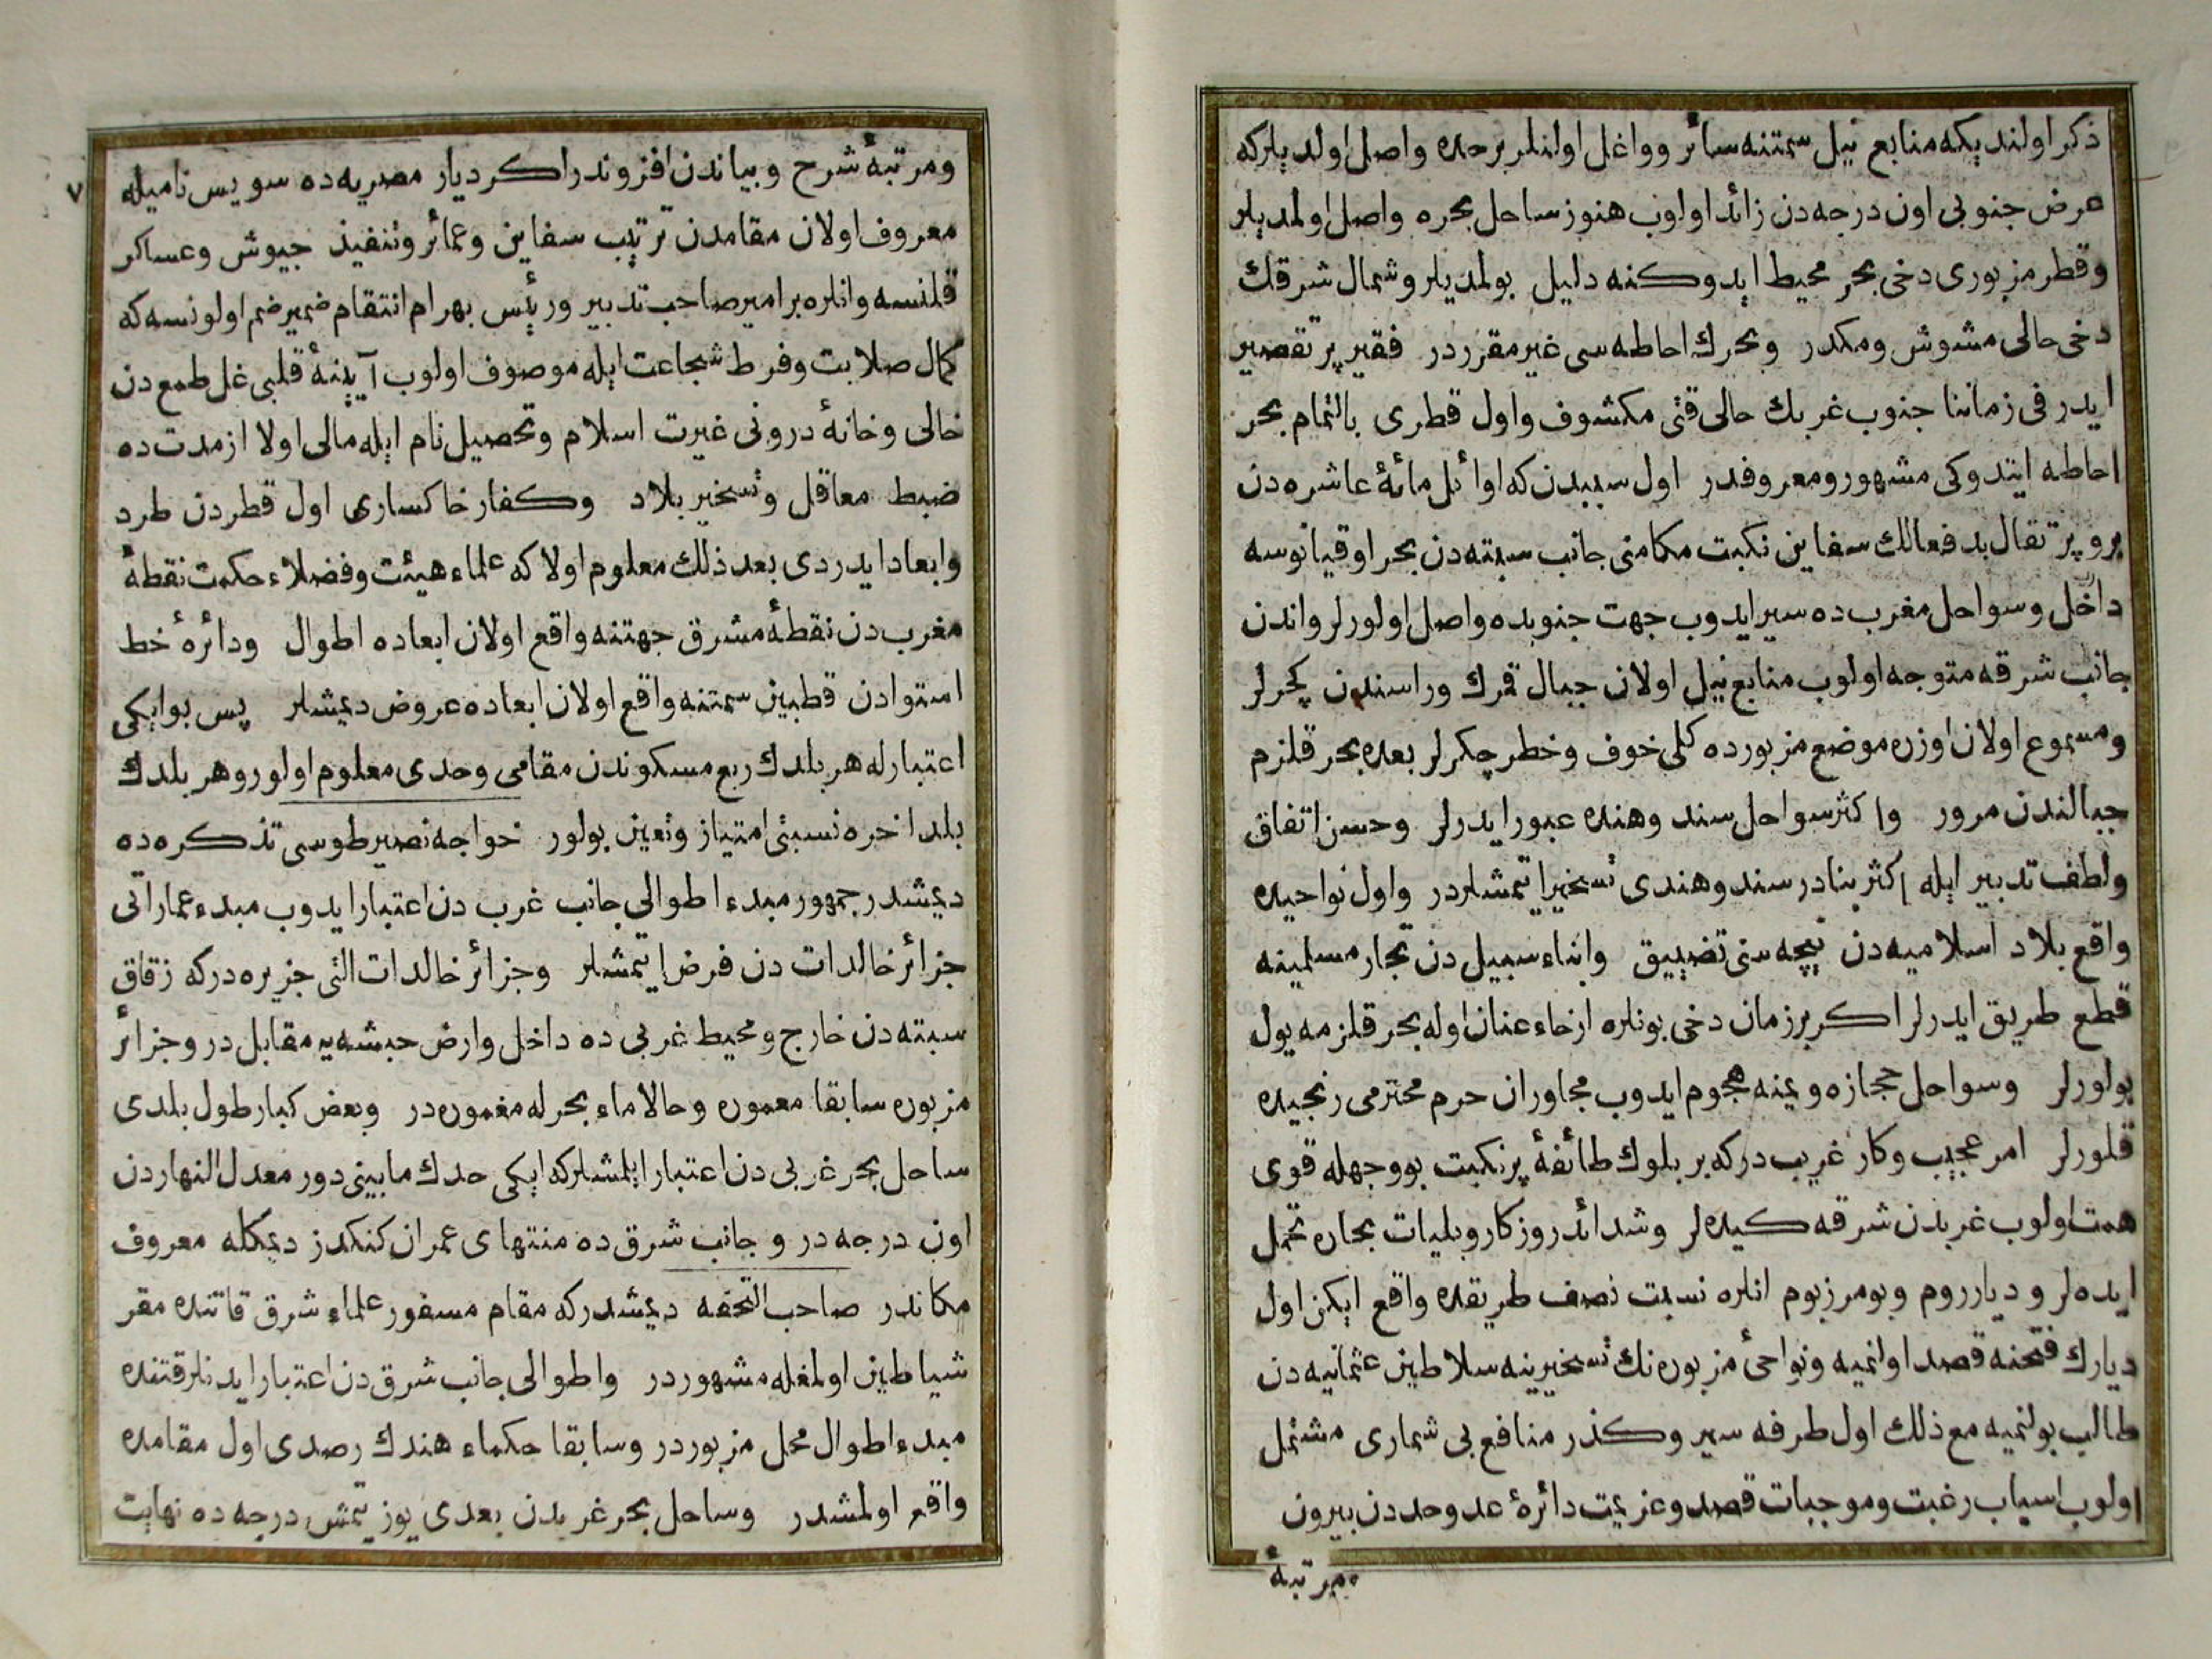 ذكر اولنديكه منابع نيل سمتنه سائر وواغل اولنلر برحده واصل اولديلركه
عرض جنوبى اون درجه دن زائد اولوب هنوز ساحل بحره واصل اولمديلر
وقطر مزبورى دخى بحر محيط ايدوكنه دليل بولمديلر وشمال شرقك
دخى حالى مشوش ومكدر وبحرك احاطه سى غير مقرردر فقير پر تقصير
ايدر فى زماننا جنوب غربك حالى قتى مكشوف واول قطرى بالتمام بحر
احاطه ايتدوكى مشهور ومعروفدر اول سببدن كه اوائل مائۀ عاشره دن
برو پرتقال بدفعالك سفاين نكبت مكامنى جانب سبته دن بحر اوقيانوسه
داخل وسواحل مغرب ده سير ايدوب جهت جنوبده واصل اولورلر واندن
جانب شرقه متوجه اولوب منابع نيل اولان جبال قمرك وراسندن كچرلر
ومسموع اولان اوزره موضع مزبورده كلى خوف وخطر چكرلر بعده بحر قلزم
جبالندن مرور واكثر سواحل سند وهنده عبور ايدرلر وحسن اتفاق
ولطف تدبير ايله اكثر بنادر سند وهندى تسخير ايتمشلردر واول نواحيده
واقع بلاد اسلاميه دن نيچه سنى تضييق وابناء سبيل دن تجار مسلمينه
قطع طريق ايدرلر اكر برزمان دخى بونلره ارخاء عنان اوله بحر قلزمه يول
بولورلر وسواحل حجازه ويمنه هجوم ايدوب مجاوران حرم محترمى رنجيده
قلورلر امر عجيب وكار غريب دركه بر بلوك طائفۀ پرنكبت بووجهله قوى
همت اولوب غربدن شرقه كيده لر وشدائد روزكار وبليات بحاره تحمل
ايده لر و ديار روم وبومرزبوم انلره نسبت نصف طريقده واقع ايكن اول
ديارك فتحنه قصد اولنميه ونواحئ مزبوره نك تسخيرينه سلاطين عثمانيه دن
طالب بولنميه مع ذلك اول طرفه سير وكذر منافع بى شمارى مشتمل
اولوب اسباب رغبت وموجبات قصد وعزيمت دائرۀ عد وحددن بيرون
مرتبۀ
٧
ومرتبۀ شرح وبياندن افزوندر اكر ديار مصريه ده سويس ناميله
معروف اولان مقامدن ترتيب سفاين وعمائر وتنفيذ جيوش وعساكر
قلنسه وانلره بر امير صاحب تدبير ورئيس بهرام انتقام ضمير ضم اولونسه كه
كمال صلابت وفرط شجاعت ايله موصوف اولوب آيينۀ قلبى غل طمع دن
خالى وخانۀ درونى غيرت اسلام وتحصيل نام ايله مالى اولا از مدت ده
ضبط معاقل وتسخير بلاد وكفار خاكسارى اول قطردن طرد
وابعاد ايدردى بعد ذلك معلوم اولا كه علماء هيئت وفضلاء حكمت نقطۀ
مغرب دن نقطۀ مشرق جهتنه واقع اولان ابعاده اطوال ودائرۀ خط
استوادن قطبين سمتنه واقع اولان ابعاده عروض ديمشلر پس بوايكى
اعتبارله هر بلدك ربع مسكوندن مقامى وحدى معلوم اولور وهر بلدك
بلد اخره نسبتى امتياز وتعين بولور خواجه نصير طوسى تذكره ده
ديمشدر جمهور مبدء اطوالى جانب غرب دن اعتبار ايدوب مبدء عماراتى
جزائر خالدات دن فرض ايتمشلر وجزائر خالدات التى جزيره دركه زقاق
سبته دن خارج ومحيط غربى ده داخل وارض حبشه يه مقابل در وجزائر
مزبوره سابقا معموره وحالا ماء بحر له مغموره در وبعض كبار طول بلدى
ساحل بحر غربى دن اعتبار ايلمشلركه ايكى حدك مابينى دور معدل النهاردن
اون درجه در و جانب شرق ده منتهاى عمران كنكدز ديمكله معروف
مكاندر صاحب التحفه ديمشدركه مقام مسفور علماء شرق قاتنده مقر
شياطين اولمغله مشهوردر واطوالى جانب شرق دن اعتبار ايدنلر قتنده
مبدء اطوال محل مزبوردر وسابقا حكماء هندك رصدى اول مقامده
واقع اولمشدر وساحل بحر غربدن بعدى يوز يتمش درجه ده نهايت